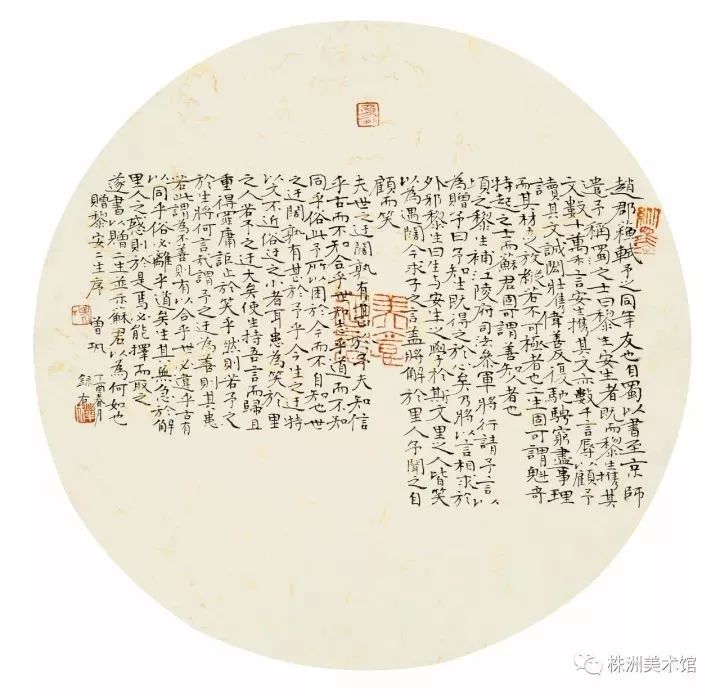 趙郡蘇軾予之同年友也自蜀以書至京師
遺予稱蜀之士曰黎生安生者既而黎生攜其
文數十萬言安生攜其文亦數千言辱以顧予
讀其文誠閎壯雋偉善反復馳騁窮盡事理
而其材力之放縱若不可極者也二生固可謂魁奇
特起之士而蘇君固可謂善知者也
頃之黎生補江陵府司法參軍將行請予言以
為贈予曰予知生既得之於矣乃將以言相求於
外邪黎生曰生與安生之學於斯文里之人皆笑
以為迂闊今求子之言蓋將解於里人予聞之自
顧而笑
夫世之迂闊孰有甚於予乎知信
乎古而不知合乎世知志乎道而不知
同乎俗此予所以困於今而不自知也世
之迂闊孰有甚於予乎今生之迂特
以文不近俗迂之小者耳患為笑於里
之人若予之迂大矣使生持吾言而歸且
重得罪庸詎止於笑乎然則若予之
於生將何言哉謂予之迂為善則其患
若此謂為不善則有以合乎世必違乎古有
以同乎俗必離乎道矣生其無急於解
里人之惑則於是焉必能擇而取之
遂書以贈二生並示蘇君以為何如也
贈黎安二生序 曾鞏
丁酉春月
錄右
株洲美术馆